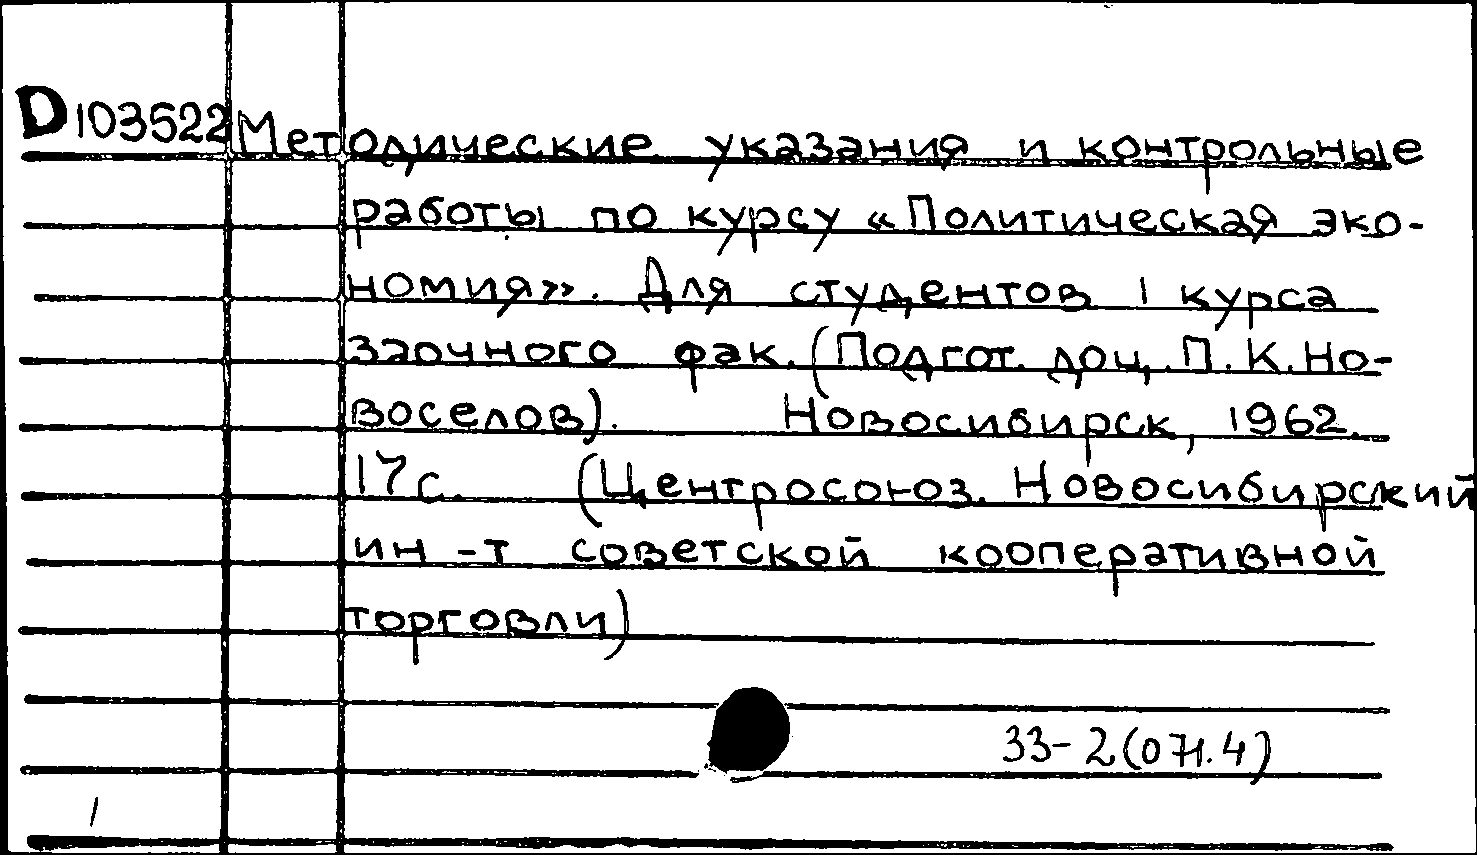 D103522 Методические указания и контрольные
работы по курсу «Политическая эко-
номия». Для студентов 1 курса
заочного фак. (Подгот. доц. П. К. Но-
воселов). Новосибирск, 1962.
17 с. (Центросоюз. Новосибирский
ин-т советской кооперативной
торговли)
33-2(071.4)
1